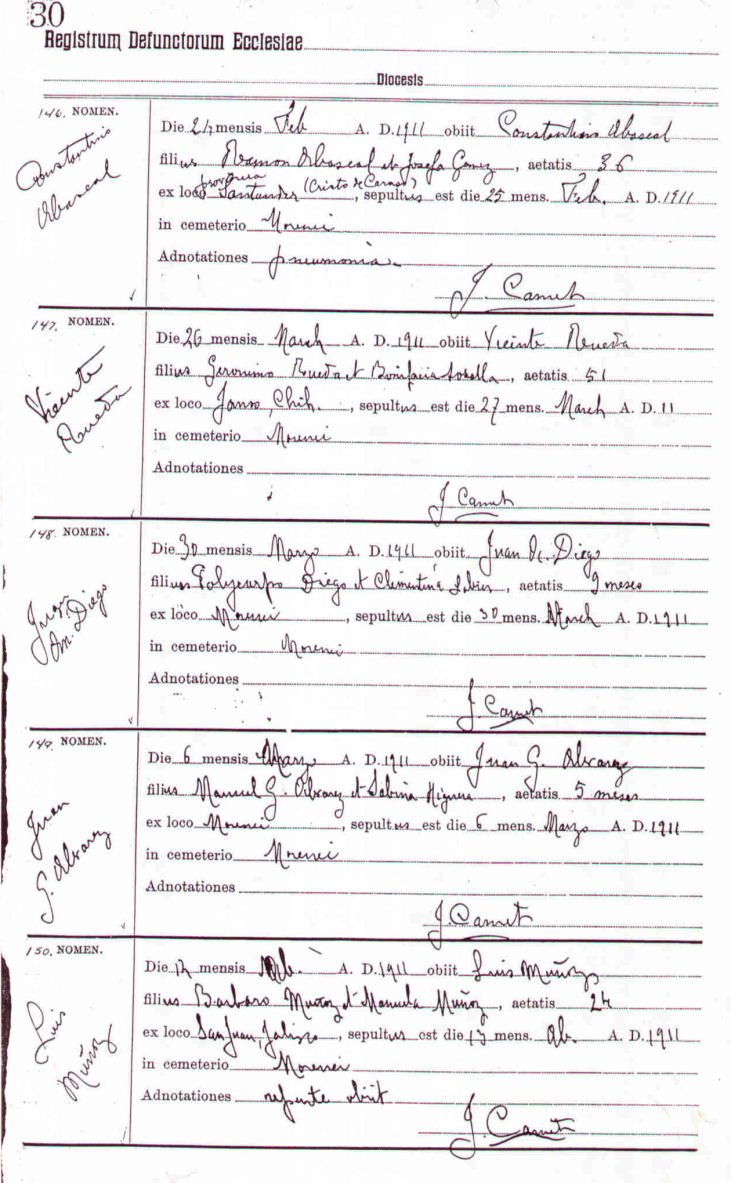 30
Registrum Defunctorum Ecclesiae
Diocesis
146. NOMEN.
Constantino
Abascal
Die 24 mensis Feb A. D. 1911 obiit Constantino Abascal
filius Ramon Abascal et Josefa Gomez, aetatis 36
ex loco provincia Santander (Cristo de ), sepultus est die 25 mens. Feb. A. D. 1911
in cemeterio Morenci
Adnotationes pneumonia
J. Camet
147. NOMEN.
Vicente
Rueda
Die 26 mensis March A. D. 1911 obiit Vicente Rueda
filius Geronimo Rueda et Bonifacia, aetatis 51
ex loco Janos, Chih., sepultus est die 27 mens. March A. D. 11
in cemeterio Morenci
Adnotationes
J Camet
148. NOMEN.
Juan
Diego
Die 30 mensis Marzo A. D. 1911 obiit Juan Diego
filius Polycarpo Diego et Clementina, aetatis 9 meses
ex loco Morenci, sepultus est die 30 mens. March A. D. 1911
in cemeterio Morenci
Adnotationes
J Camet
149. NOMEN.
Juan
G. Alvarez
Die 6 mensis Marzo A. D. 1911 obiit Juan G. Alvarez
filius Manuel G. Alvarez et Sabina Higuera, aetatis 5 meses
ex loco Morenci, sepultus est die 6 mens. Marzo A. D. 1911
in cemeterio Morenci
Adnotationes
J Camet
150. NOMEN.
Luis
Muñoz
Die 12 mensis Ab. A. D. 1911 obiit Luis Muñoz
filius Barbaro Muñoz et Manuela Muñoz, aetatis 24
ex loco San Juan, Jalisco, sepultus est die 13 mens. Ab. A. D. 1911
in cemeterio Morenci
Adnotationes repente obiit
J. Camet